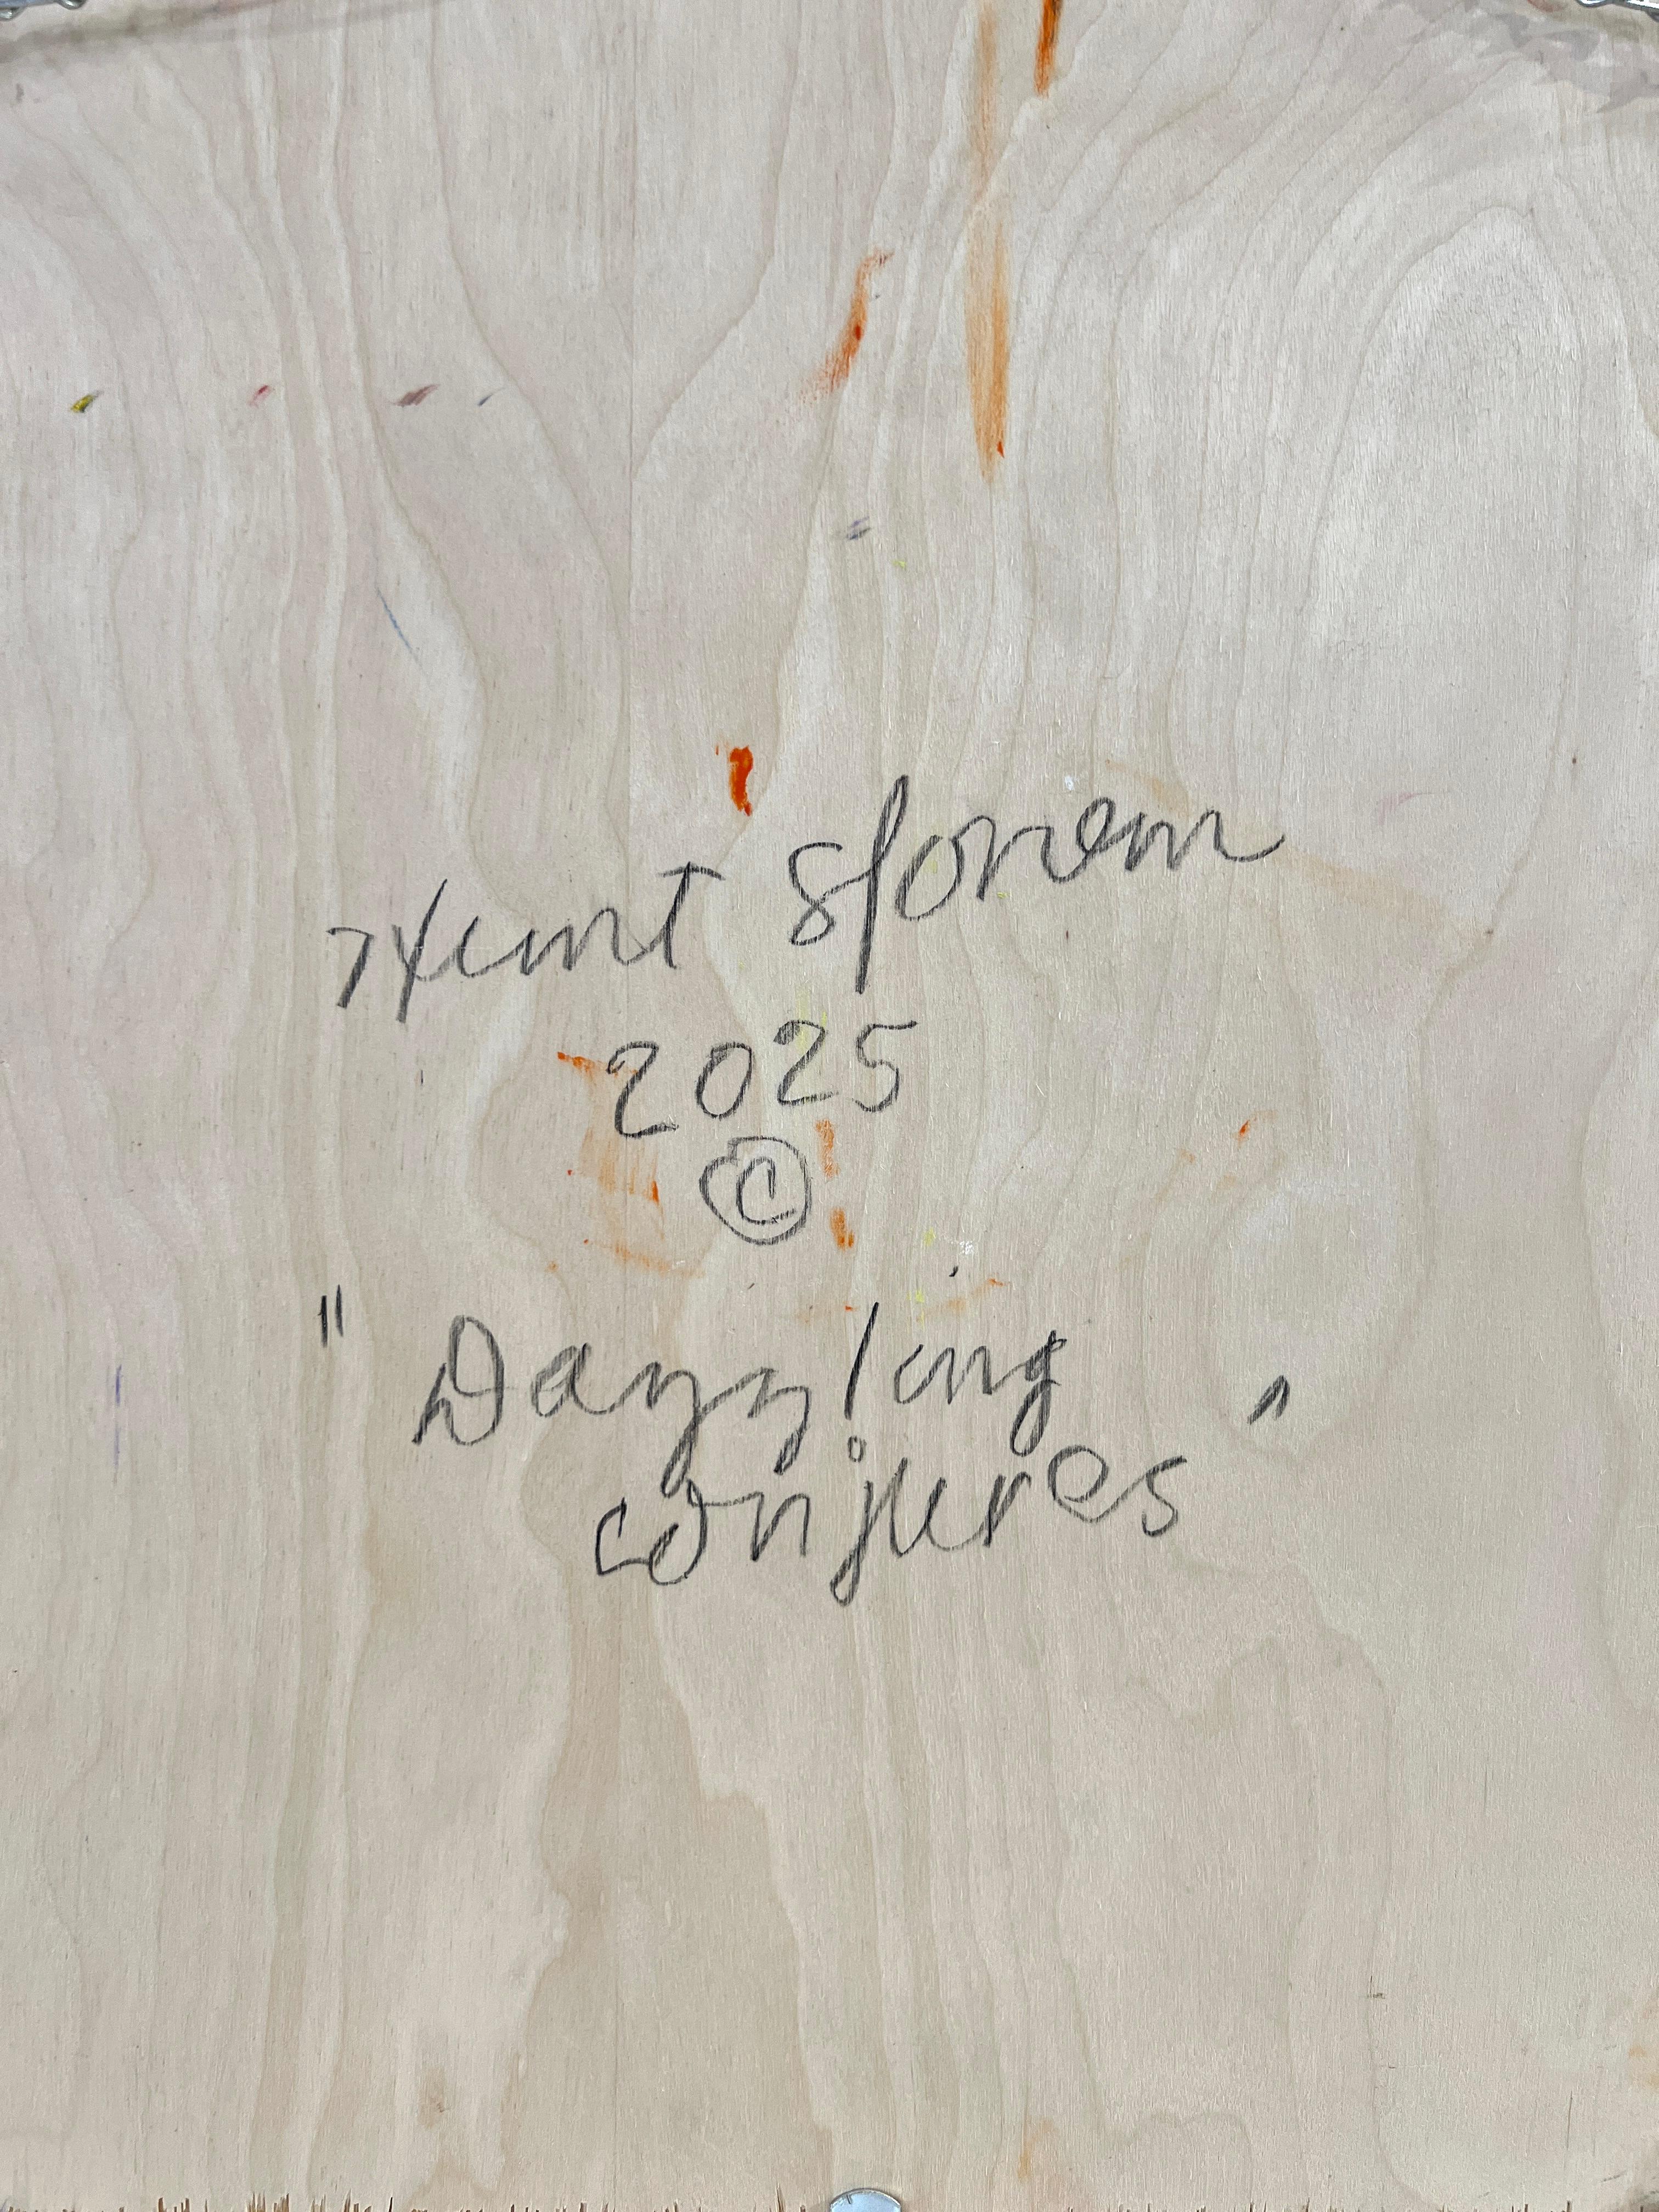 Hunt Slonem
2025
©
"Dazzling
conjures"